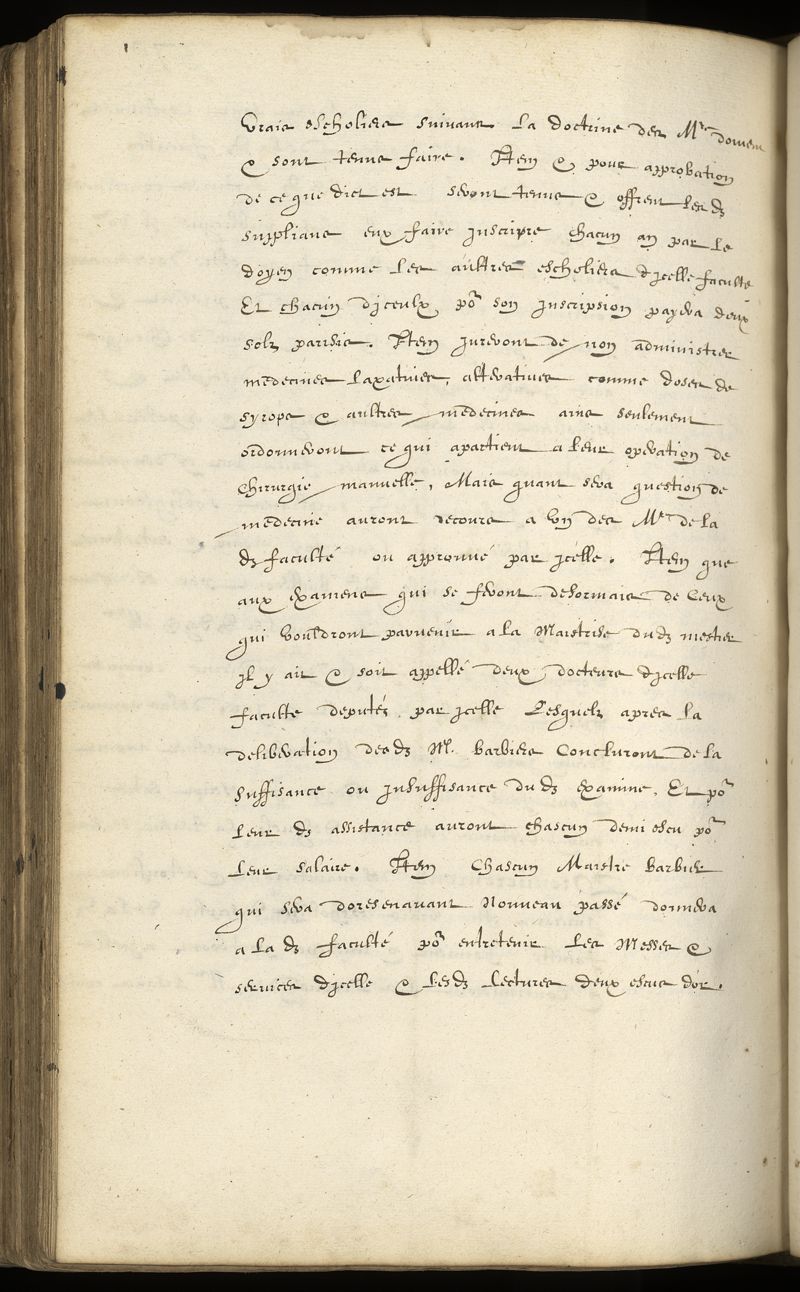 Vrais escholiers suivans la doctrine des Mrs doivent
& sont tenus faire. Item & pour approbation
de ce que dict est seront tenus & offrent lesd
supplians eux faire inscripre chacun an par le
doyen comme les aultres escholiers dicelle faculté
Et chacun diceulx por son inscripsion payera deux
solz parisis. Item jureront de non administrer
médecines laxatives, alteratives comme doses de
syrops & aultres médecines ains seulement
ordonneront ce qui apartient a leur operation de
chirurgie manuelle, Mais quant sera question de
médecine auront recours a Vn des Mes de la
d faculté ou approuué par icelle. Item que
aux examens qui se feront desormais de Ceux
qui vouldront paruenir a la Maistrise dud mestier
il y ait & soit appellé deux docteurs dicelle
faculte deputés par icelle Lesquelz apres la
deliberation desd M. Barbiers Concluront de la
suffisance ou insuffisance dud examine, Et por
leur d assistance auront chascun demi escu por
leur salaire. Item Chascun Maistre barbier
qui sera doresenauant Nouueau passé donnera
a la d faculté por entretenir les Messes &
services dicelle & lesd Lectures deux escus dor.